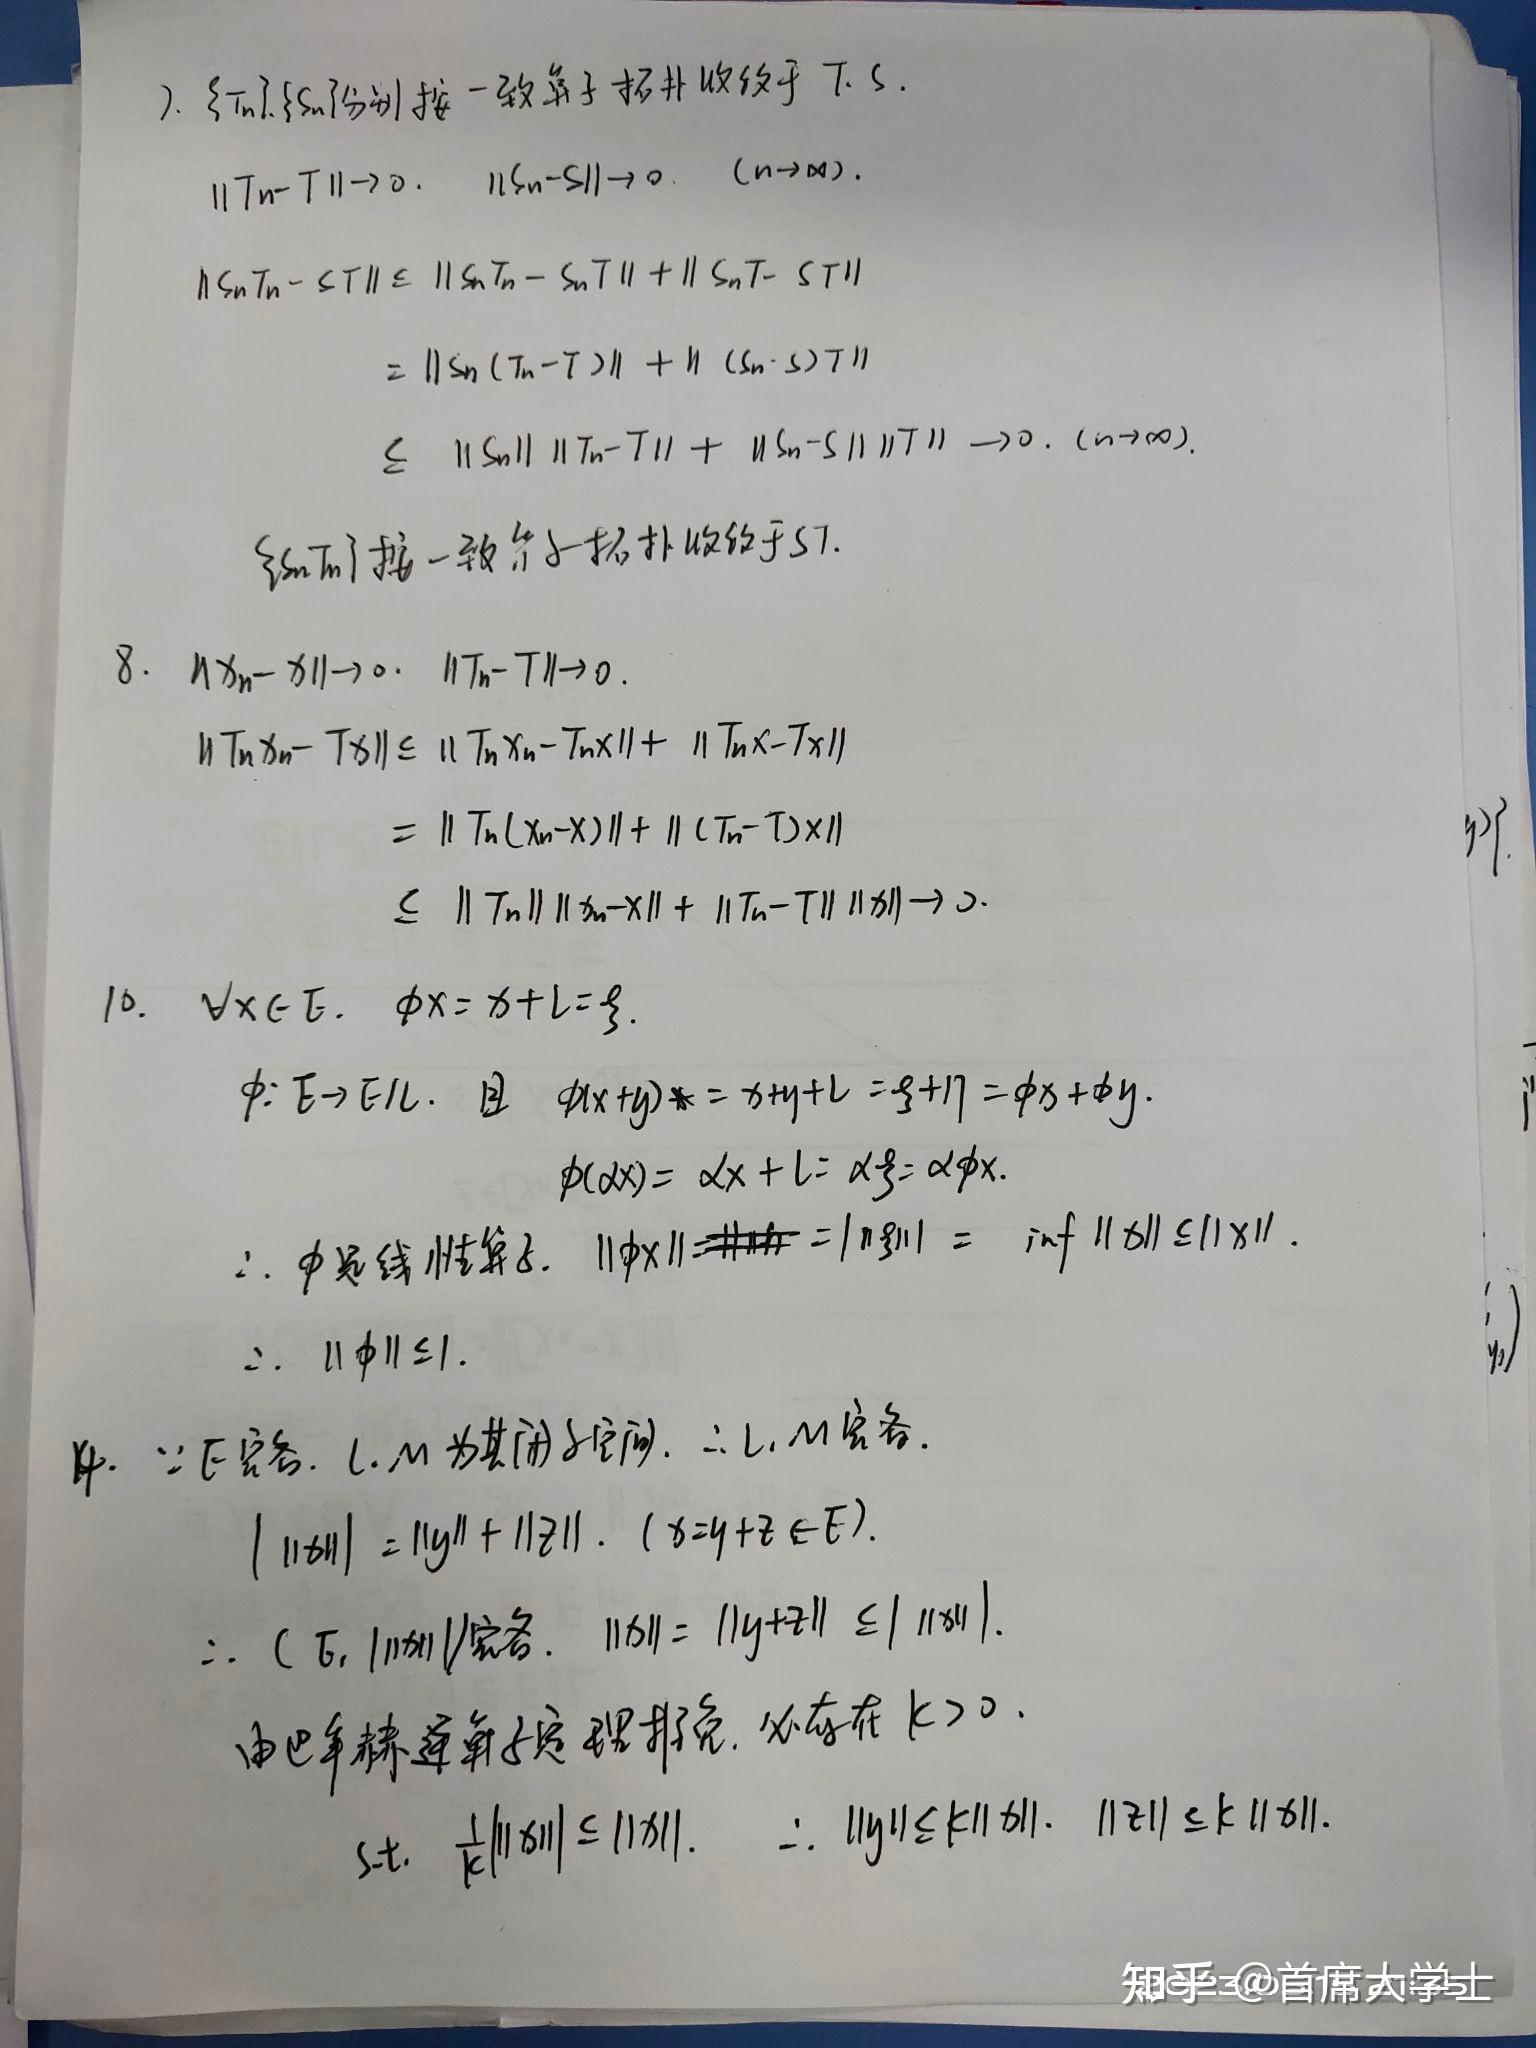 7. {Tn}.{Sn}分别按一致算子拓扑收敛于 T. S.
||Tn-T||→0. ||Sn-S||→0. (n→∞).
||SnTn-ST||≤ ||SnTn-SnT||+||SnT-ST||
=||Sn(Tn-T)|| + ||(Sn-S)T||
≤ ||Sn|| ||Tn-T|| + ||Sn-S|| ||T|| →0. (n→∞).
{SnTn}按一致算子拓扑收敛于ST.
8. ||xn-x||→0. ||Tn-T||→0.
||Tnxn-Tx||≤ ||Tnxn-Tnx||+ ||Tnx-Tx||
= ||Tn(xn-x)||+||(Tn-T)x||
≤ ||Tn|| ||xn-x||+ ||Tn-T|| ||x||→0.
10. ∀x∈E. φx=x+L=ξ.
φ: E→E/L. 且 φ(x+y)=x+y+L=ξ+η=φx+φy.
φ(αx)= αx+L=αξ=αφx.
∴ φ是线性算子. ||φx|| =|||ξ||| = inf||x||≤||x||.
∴ ||φ||≤1.
14. ∵E完备. L.M为其闭子空间. ∴L.M完备.
|||x|||=||y||+||z||. (x=y+z∈E).
∴ (E, |||x|||)完备. ||x||=||y+z|| ≤|||x|||.
由巴拿赫逆算子定理推论. 必存在 k>0.
s.t. 1/k|||x|||≤||x||. ∴ ||y||≤k||x||. ||z||≤k||x||.
y)}.
y,)
知乎 @首席大学士